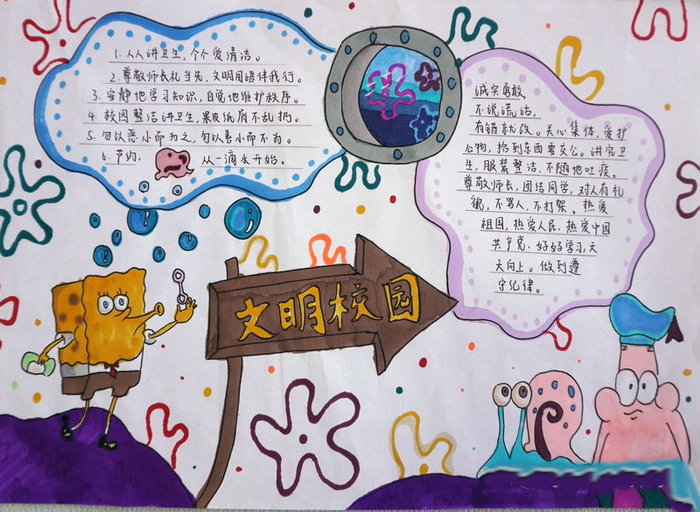 1. 人人讲卫生，个个爱清洁。
2. 尊敬师长礼当先，文明用语伴我行。
3. 安静地学习知识，自觉地维护秩序。
4 校园整洁讲卫生，果皮纸屑不乱扔。
5. 勿以恶小而为之，勿以善小而不为。
6. 节约，从一滴水开始。
诚实勇敢，
不说谎话，
有错就改。关心集体，爱护
公物，拾到东西要交公。讲究卫
生，服装整洁，不随地吐痰。
尊敬师长，团结同学，对人有礼
貌，不骂人，不打架。热爱
祖国，热爱人民，热爱中国
共产党，好好学习，天
天向上。做到遵
守纪律。
文明校园